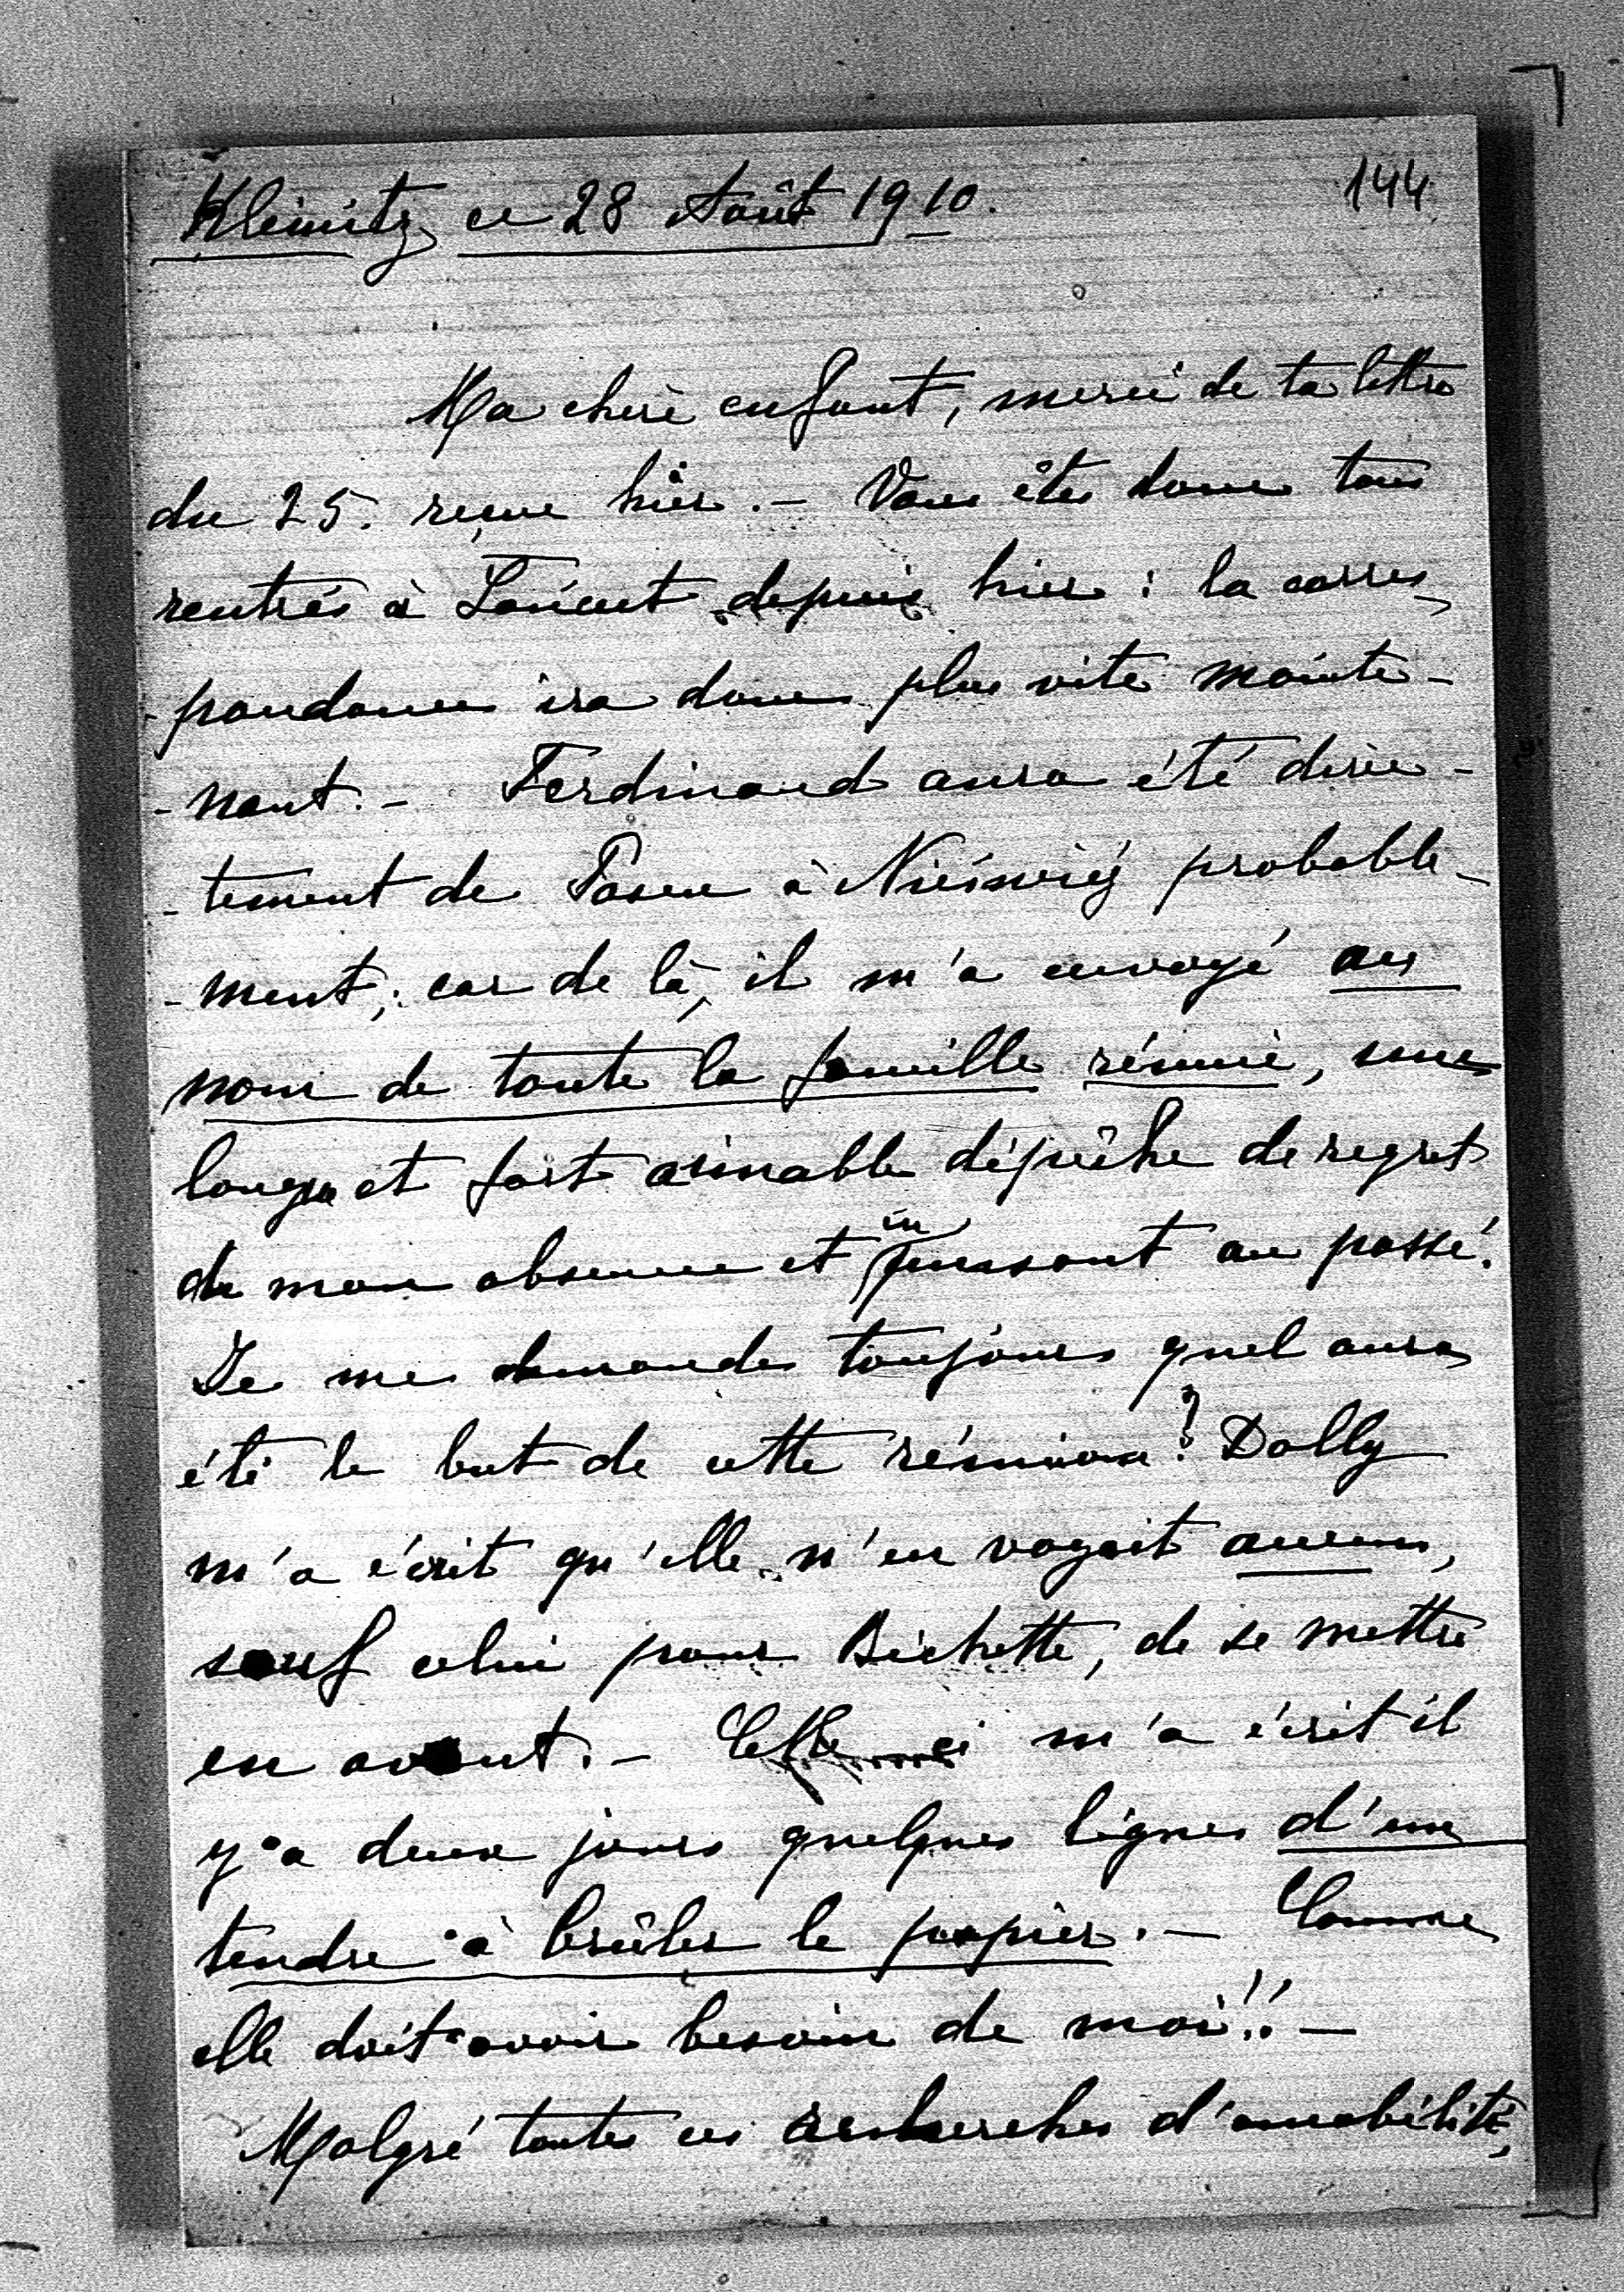 Kleinitz ce 28 Août 1910.
144
Ma chère enfant, merci de ta lettre
du 25. reçue hier. – Vous êtes donc tous
rentrés à Łańcut depuis hier : la corres-
-pondance ira donc plus vite mainte-
-nant. – Ferdinand aura été direc-
-tement de Posen à Nieśwież probable-
-ment, car de là, il m'a envoyé au
nom de toute la famille réunie, une
longue et fort aimable dépêche de regret
de mon absence et en pensant au passé.
Je me demande toujours quel aura
été le but de cette réunion? Dolly
m'a écrit qu'elle n'en voyait aucun,
sauf celui pour Bichette, de se mettre
en avant. – Celle-ci m'a écrit il
y a deux jours quelques lignes d'une
tendre à brûler le papier. – Comme
elle doit avoir besoin de moi!! –
Malgré toutes ces recherches d'amabilité,